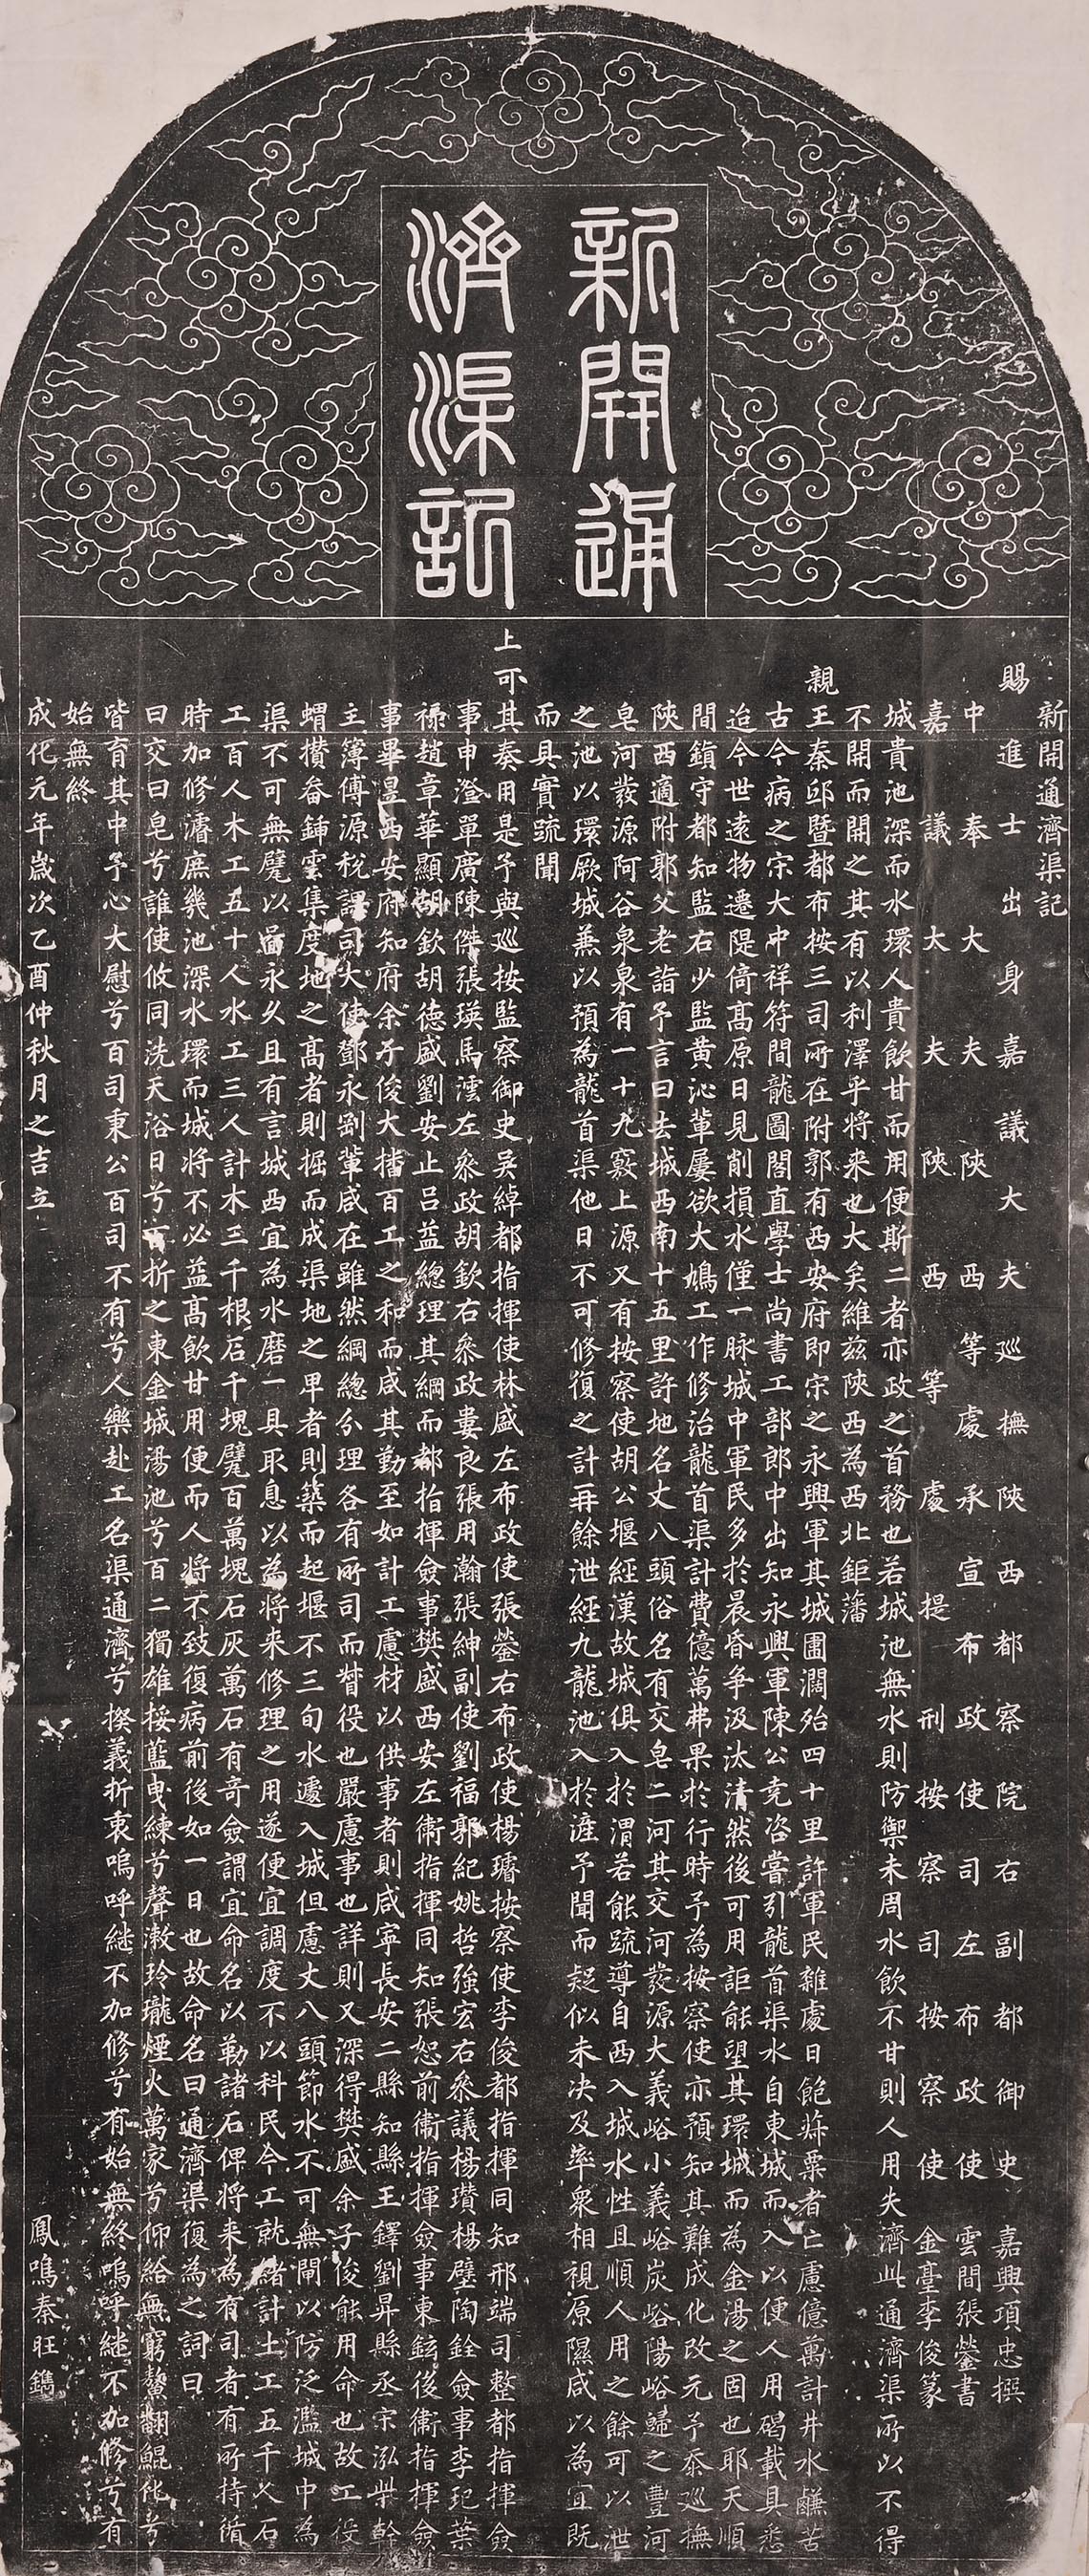 新開通
濟渠記
新開通濟渠記
賜進士出身嘉議大夫巡撫陝西都察院右副都御史嘉興項忠撰
中奉大夫陝西等處承宣布政使司左布政使雲間張鎣書
嘉議大夫陝西等處提刑按察司按察使金臺李俊篆
城貴池深而水環人貴飲甘而用便斯二者亦政之首務也若城池無水則防禦未周水飲不甘則人用失濟此通濟渠所以不得
不開而開之其有以利澤乎將来也大矣維玆陝西為西北鉅藩
親王秦邸暨都布按三司所在附郭有西安府即宗之永興軍其城圍濶殆四十里許軍民雜處日飽粟者亡慮億萬計井水鹹苦
古今病之宗大中祥符間龍圖閣直學士尚書工部郎中出知永興軍陳公堯咨嘗引龍首渠水自東城而入以便人用碣載具悉
迨今世遠物遷隄倚髙原日見削損水僅一脉城中軍民多於晨昏爭汲汰清然後可用詎能望其環城而為金湯之固也耶天順
間鎮守都知監右少監黄沁輩屢欲大鳩工作修治龍首渠計費億萬弗果於行時予為按察使亦預知其難成化改元予忝巡撫
陝西適附郭父老詣予言曰去城西南十五里許地名丈八頭俗名有交皂二河其交河發源大義峪小義峪炭峪陽峪歸之豐河
皂河發源阿谷泉泉有一十九竅上源又有按察使胡公堰經漢故城俱入於渭若能疏導自西入城水性且順人用之餘可以泄
之池以環厥城蕪以預為龍首渠他日不可修復之計再餘泄經九龍池入於滻予聞而疑似未决及率衆相視原隰咸以為宜既
而具實疏聞
上可其奏用是予與巡按監察御史吳綽都指揮使林盛左布政使張鎣右布政使楊璿按察使李俊都指揮同知邢端司整都指揮僉
事申澄單廣陳傑張瑛馬澐左叅政胡欽右叅政婁良張用瀚張紳副使劉福郭紀姚哲強宏右叅議楊瓚楊璧陶銓僉事李玘葉
祿趙章華顯胡欽胡德盛劉安止吕益總理其綱而都指揮僉事樊盛西安左衞指揮同知張恕前衞指揮僉事東鉉後衞指揮僉
事畢昱西安府知府余子俊大播百工之和而咸其勤至如計工慮材以供事者則咸寧長安二縣知縣王鐸劉昇縣丞宗泓柴幹
主簿傅源稅課司大使鄧永劉輩咸在雖然綱總分理各有所司而督役也嚴慮事也詳則又深得樊盛余子俊能用命也故工役
蝟攅畚鍤雲集度地之髙者則掘而成渠地之卑者則築而起堰不三旬水遽入城但慮丈八頭節水不可無閘以防泛濫城中為
渠不可無甓以啚永久且有言城西宜為水磨一具取息以為將来修理之用遂便宜調度不以科民今工就緒計土工五千人石
工百人木工五十人水工三人計木三千根石千塊甓百萬塊石灰萬石有竒僉謂宜命名以勒諸石俾將来為有司者有所持循
時加修濬庶幾池深水環而城將不必益髙飲甘用便而人將不致復病前後如一日也故命名曰通濟渠復為之詞曰
曰交曰皂兮誰使攸同洗天浴日兮百折之東金城湯池兮百二獨雄挼藍曳練兮聲漱玲瓏煙火萬家兮仰給無窮鰲翻鯤化兮
皆育其中予心大慰兮百司秉公百司不有兮人樂赴工名渠通濟兮揆義折衷嗚呼継不加修兮有始無終嗚呼継不加修兮有
始無終
成化元年歲次乙酉仲秋月之吉立　鳳鳴秦旺鐫